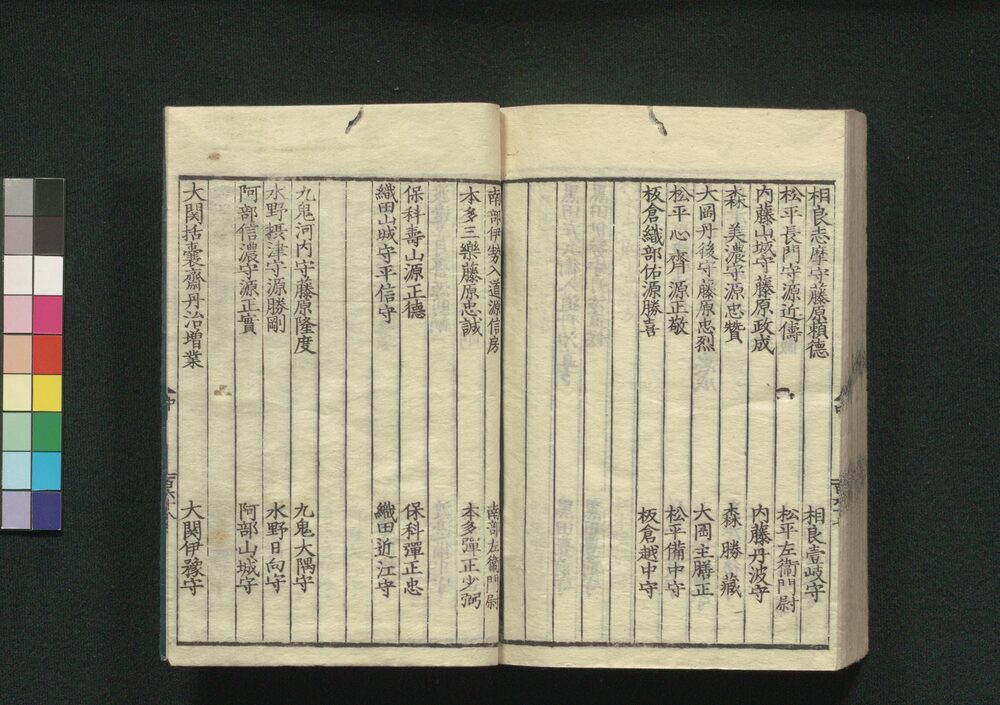 相良志摩守藤原頼德
相良壹岐守
松平長門守源近儔
松平左衞門尉
内藤山城守藤原政成
内藤丹波守
森美濃守源忠賛
森勝藏
大岡丹後守藤原忠烈
大岡主膳正
松平心齊源正敬
松平備中守
板倉織部佑源勝喜
板倉越中守
南部伊勢入道源信房
南部左衞門尉
本多三樂藤原忠誠
本多彈正少弼
保科壽山源正德
保科彈正忠
織田山城守平信守
織田近江守
九鬼河内守藤原隆度
九鬼大隅守
水野摂津守源勝剛
水野日向守
阿部信濃守源正實
阿部山城守
大関括囊齋丹冶増業
大関伊豫守
中